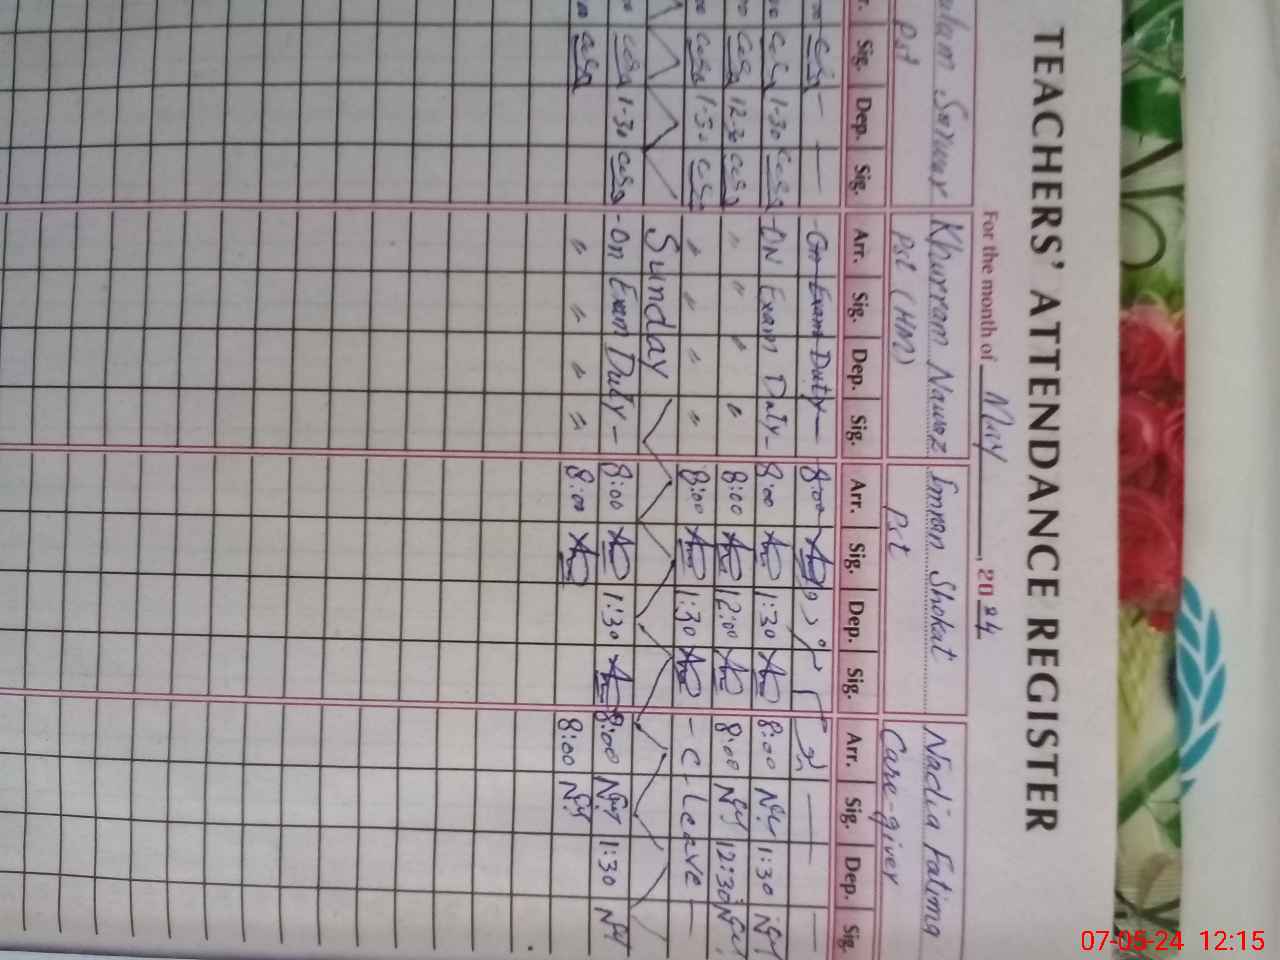 TEACHERS' ATTENDANCE REGISTER
For the month of May, 2024
Sarwar Khurram Nawaz Imran Shokat Nadia Fatima
Pst Pst (HM) Pst Care-giver
Sig. Dep. Sig. Arr. Sig. Dep. Sig. Arr. Sig. Dep. Sig. Arr. Sig. Dep. Sig.
— — -On Exam Duty— 8:00 — —
1-30 -ON Exam Duty- 8:00 1:30 8:00 1:30
12-30 " " " " 8:00 12:00 8:00 12:30
1-30 " " " " 8:00 1:30 -C-Leave-
Sunday
1-30 -On Exam Duty- 8:00 1:30 8:00 1:30
" " " " 8:00 8:00
07-05-24 12:15